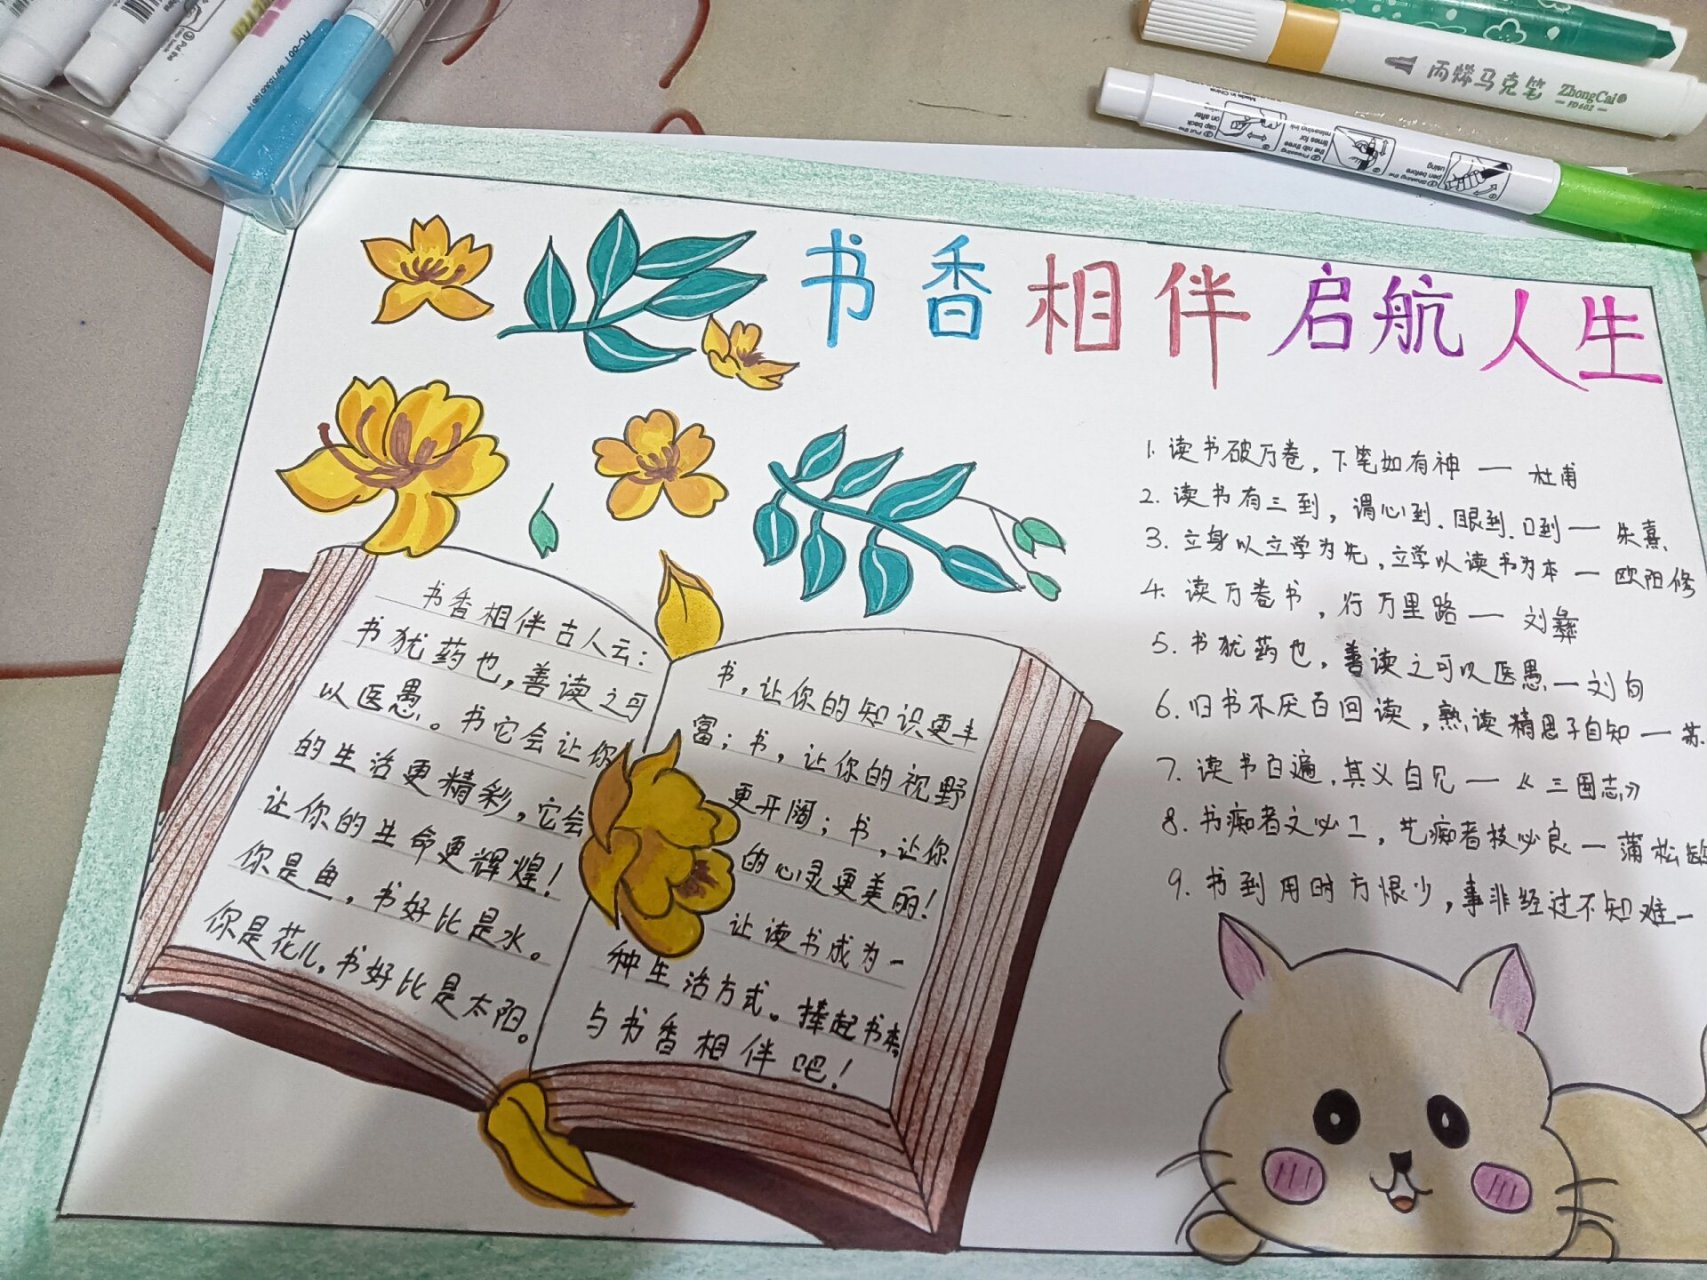 丙烯马克笔 ZhongCai
书香相伴启航人生
1. 读书破万卷，下笔如有神 — 杜甫
2. 读书有三到，谓心到.眼到.口到 — 朱熹.
3. 立身以立学为先，立学以读书为本 — 欧阳修
4. 读万卷书，行万里路 — 刘彝
5. 书犹药也，善读之可以医愚 — 刘向
6. 旧书不厌百回读，熟读精思子自知 — 苏
7. 读书百遍，其义自见 — 《三国志》
8. 书痴者文必工，艺痴者技必良 — 蒲松龄
9. 书到用时方恨少，事非经过不知难 —
书香相伴古人云：
书犹药也，善读之可
以医愚。书它会让你
的生活更精彩，它会
让你的生命更辉煌！
你是鱼，书好比是水。
你是花儿，书好比是太阳。
书，让你的知识更丰
富；书，让你的视野
更开阔；书，让你
的心灵更美丽！
让读书成为一
种生活方式。捧起书本
与书香相伴吧！